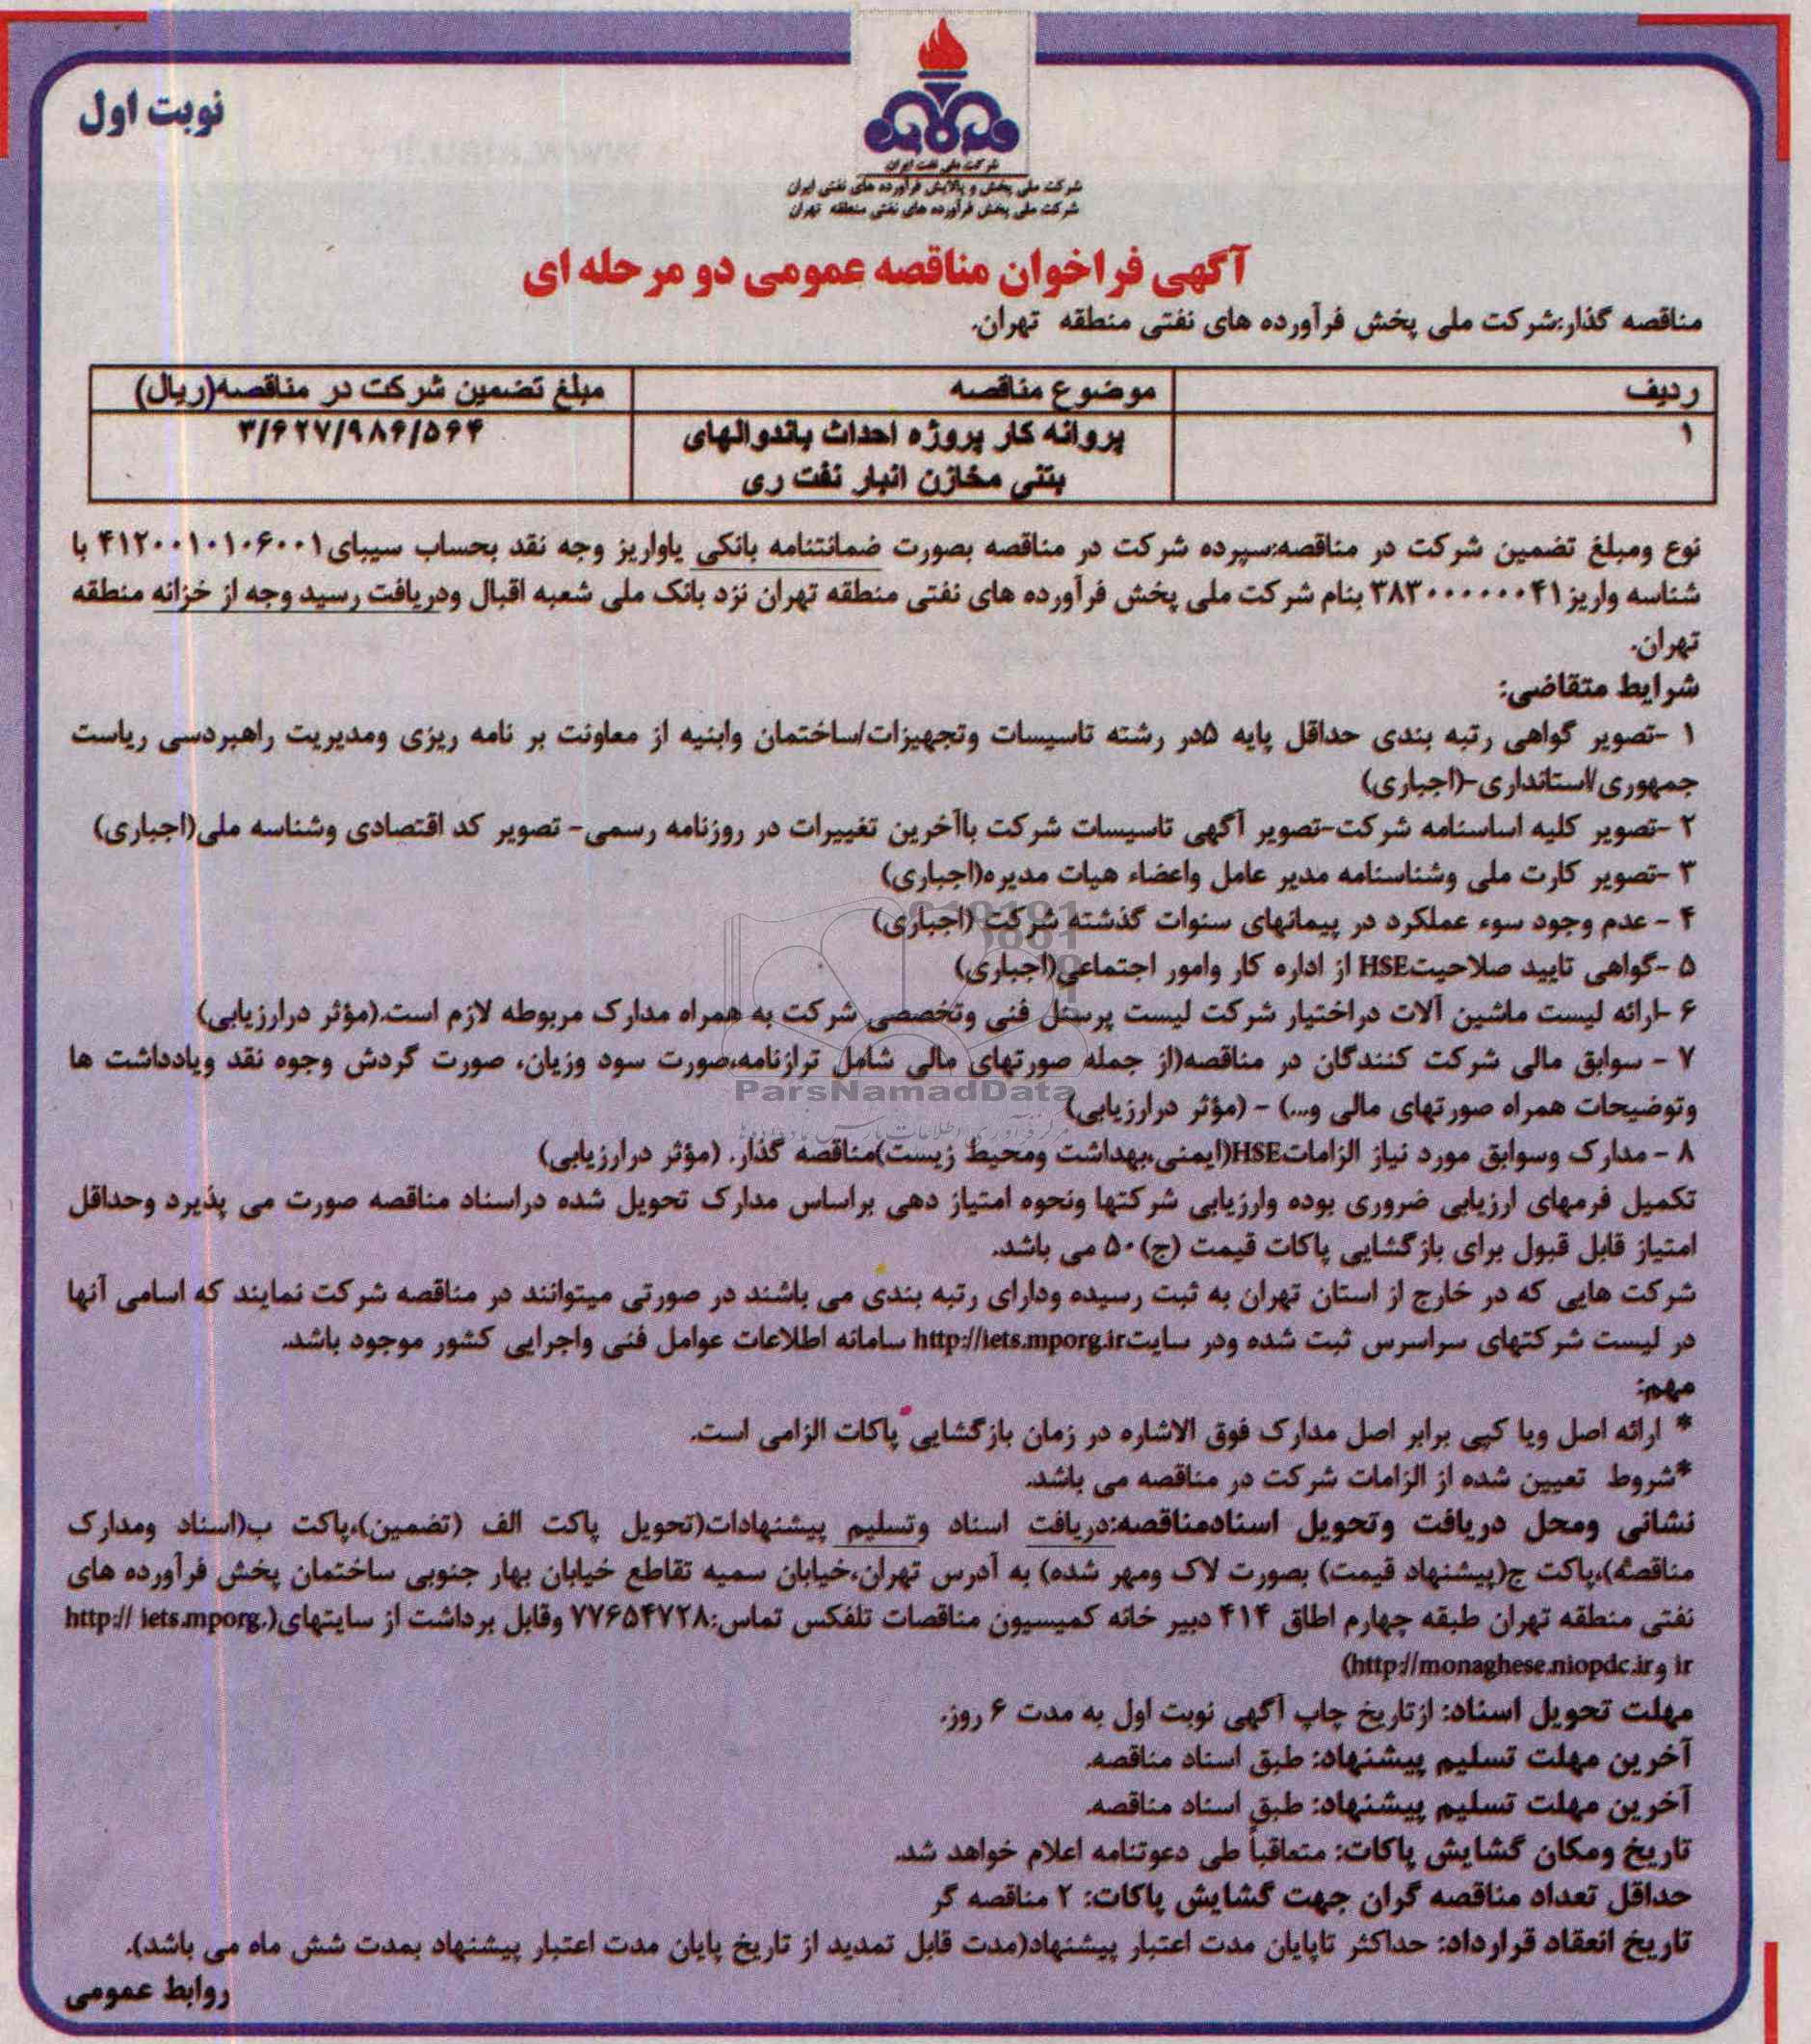 نوبت اول
شرکت ملی نفت ایران
شرکت ملی پخش و پالایش فرآورده های نفتی ایران
شرکت ملی پخش فرآورده های نفتی منطقه تهران
آگهی فراخوان مناقصه عمومی دو مرحله ای
مناقصه گذار:شرکت ملی پخش فرآورده های نفتی منطقه تهران.
ردیف موضوع مناقصه مبلغ تضمین شرکت در مناقصه(ریال)
۱ پروانه کار پروژه احداث باندوالهای ۳/۶۲۷/۹۸۶/۵۶۴
بتنی مخازن انبار نفت ری
نوع ومبلغ تضمین شرکت در مناقصه:سپرده شرکت در مناقصه بصورت ضمانتنامه بانکی یاواریز وجه نقد بحساب سیبای۴۱۲۰۰۱۰۱۰۶۰۰۱ با
شناسه واریز۳۸۳۰۰۰۰۰۰۰۴۱ بنام شرکت ملی پخش فرآورده های نفتی منطقه تهران نزد بانک ملی شعبه اقبال ودریافت رسید وجه از خزانه منطقه
تهران.
شرایط متقاضی:
۱ -تصویر گواهی رتبه بندی حداقل پایه ۵در رشته تاسیسات وتجهیزات/ساختمان وابنیه از معاونت بر نامه ریزی ومدیریت راهبردسی ریاست
جمهوری/استانداری-(اجباری)
۲ -تصویر کلیه اساسنامه شرکت-تصویر آگهی تاسیسات شرکت باآخرین تغییرات در روزنامه رسمی- تصویر کد اقتصادی وشناسه ملی(اجباری)
۳ -تصویر کارت ملی وشناسنامه مدیر عامل واعضاء هیات مدیره(اجباری)
۴ - عدم وجود سوء عملکرد در پیمانهای سنوات گذشته شرکت (اجباری)
۵ -گواهی تایید صلاحیتHSE از اداره کار وامور اجتماعی(اجباری)
۶ -ارائه لیست ماشین آلات دراختیار شرکت لیست پرسنل فنی وتخصصی شرکت به همراه مدارک مربوطه لازم است.(مؤثر درارزیابی)
۷ - سوابق مالی شرکت کنندگان در مناقصه(از جمله صورتهای مالی شامل ترازنامه،صورت سود وزیان، صورت گردش وجوه نقد ویادداشت ها
ParsNamadData
وتوضیحات همراه صورتهای مالی و...) - (مؤثر درارزیابی)
مرکز فرآوری اطلاعات پارس نماد داده ها
۸ - مدارک وسوابق مورد نیاز الزاماتHSE(ایمنی،بهداشت ومحیط زیست)مناقصه گذار. (مؤثر درارزیابی)
تکمیل فرمهای ارزیابی ضروری بوده وارزیابی شرکتها ونحوه امتیاز دهی براساس مدارک تحویل شده دراسناد مناقصه صورت می پذیرد وحداقل
امتیاز قابل قبول برای بازگشایی پاکات قیمت (ج) ۵۰ می باشد.
شرکت هایی که در خارج از استان تهران به ثبت رسیده ودارای رتبه بندی می باشند در صورتی میتوانند در مناقصه شرکت نمایند که اسامی آنها
در لیست شرکتهای سراسرس ثبت شده ودر سایتhttp://iets.mporg.ir سامانه اطلاعات عوامل فنی واجرایی کشور موجود باشد.
مهم:
* ارائه اصل ویا کپی برابر اصل مدارک فوق الاشاره در زمان بازگشایی پاکات الزامی است.
*شروط تعیین شده از الزامات شرکت در مناقصه می باشد.
نشانی ومحل دریافت وتحویل اسنادمناقصه:دریافت اسناد وتسلیم پیشنهادات(تحویل پاکت الف (تضمین)،پاکت ب(اسناد ومدارک
مناقصه)،پاکت ج(پیشنهاد قیمت) بصورت لاک ومهر شده) به آدرس تهران،خیابان سمیه تقاطع خیابان بهار جنوبی ساختمان پخش فرآورده های
نفتی منطقه تهران طبقه چهارم اطاق ۴۱۴ دبیر خانه کمیسیون مناقصات تلفکس تماس:۷۷۶۵۴۷۲۸ وقابل برداشت از سایتهای(http:// iets.mporg.
ir وhttp://monaghese.niopdc.ir)
مهلت تحویل اسناد: ازتاریخ چاپ آگهی نوبت اول به مدت ۶ روز.
آخرین مهلت تسلیم پیشنهاد: طبق اسناد مناقصه.
آخرین مهلت تسلیم پیشنهاد: طبق اسناد مناقصه.
تاریخ ومکان گشایش پاکات: متعاقباً طی دعوتنامه اعلام خواهد شد.
حداقل تعداد مناقصه گران جهت گشایش پاکات: ۲ مناقصه گر
تاریخ انعقاد قرارداد: حداکثر تاپایان مدت اعتبار پیشنهاد(مدت قابل تمدید از تاریخ پایان مدت اعتبار پیشنهاد بمدت شش ماه می باشد).
روابط عمومی